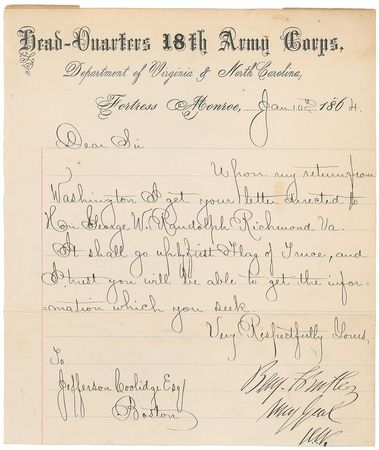 Head-Quarters 18th Army Corps,
Department of Virginia & North Carolina,
Fortress Monroe, Jan 10th 1864.
Dear Sir
Upon my return from
Washington I get your letter directed to
Hon George W. Randolph Richmond Va.
It shall go up first Flag of Truce, and
I trust you will be able to get the infor-
-mation which you seek.
Very Respectfully Yours,
To
Jefferson Coolidge Esq
Boston
Benj. F. Butler
Maj Genl